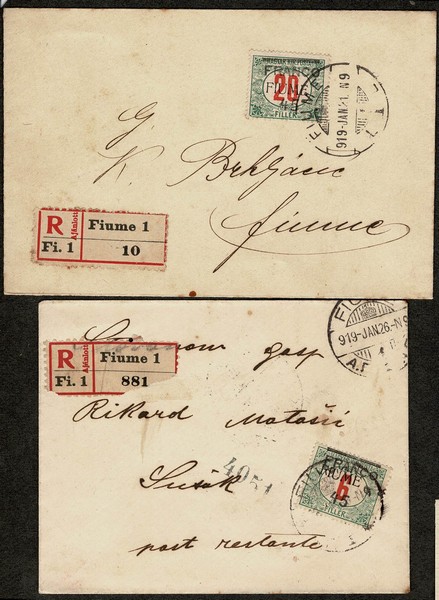 MAGYAR KIR. POSTA
FRANCO
20
FIUME
45
FILLER
FIUME
919-JAN 21. N9
G
K. Brhljacic
Fiume
R
Ajánlott
Fiume 1
Fi. 1
10
FIUME
919-JAN 26-N9
gosp
R
Ajánlott
Fiume 1
Fi. 1
881
Rikard Matošić
4051
Sušak
FRANCO
6
FIUME
45
FILLER
post restante